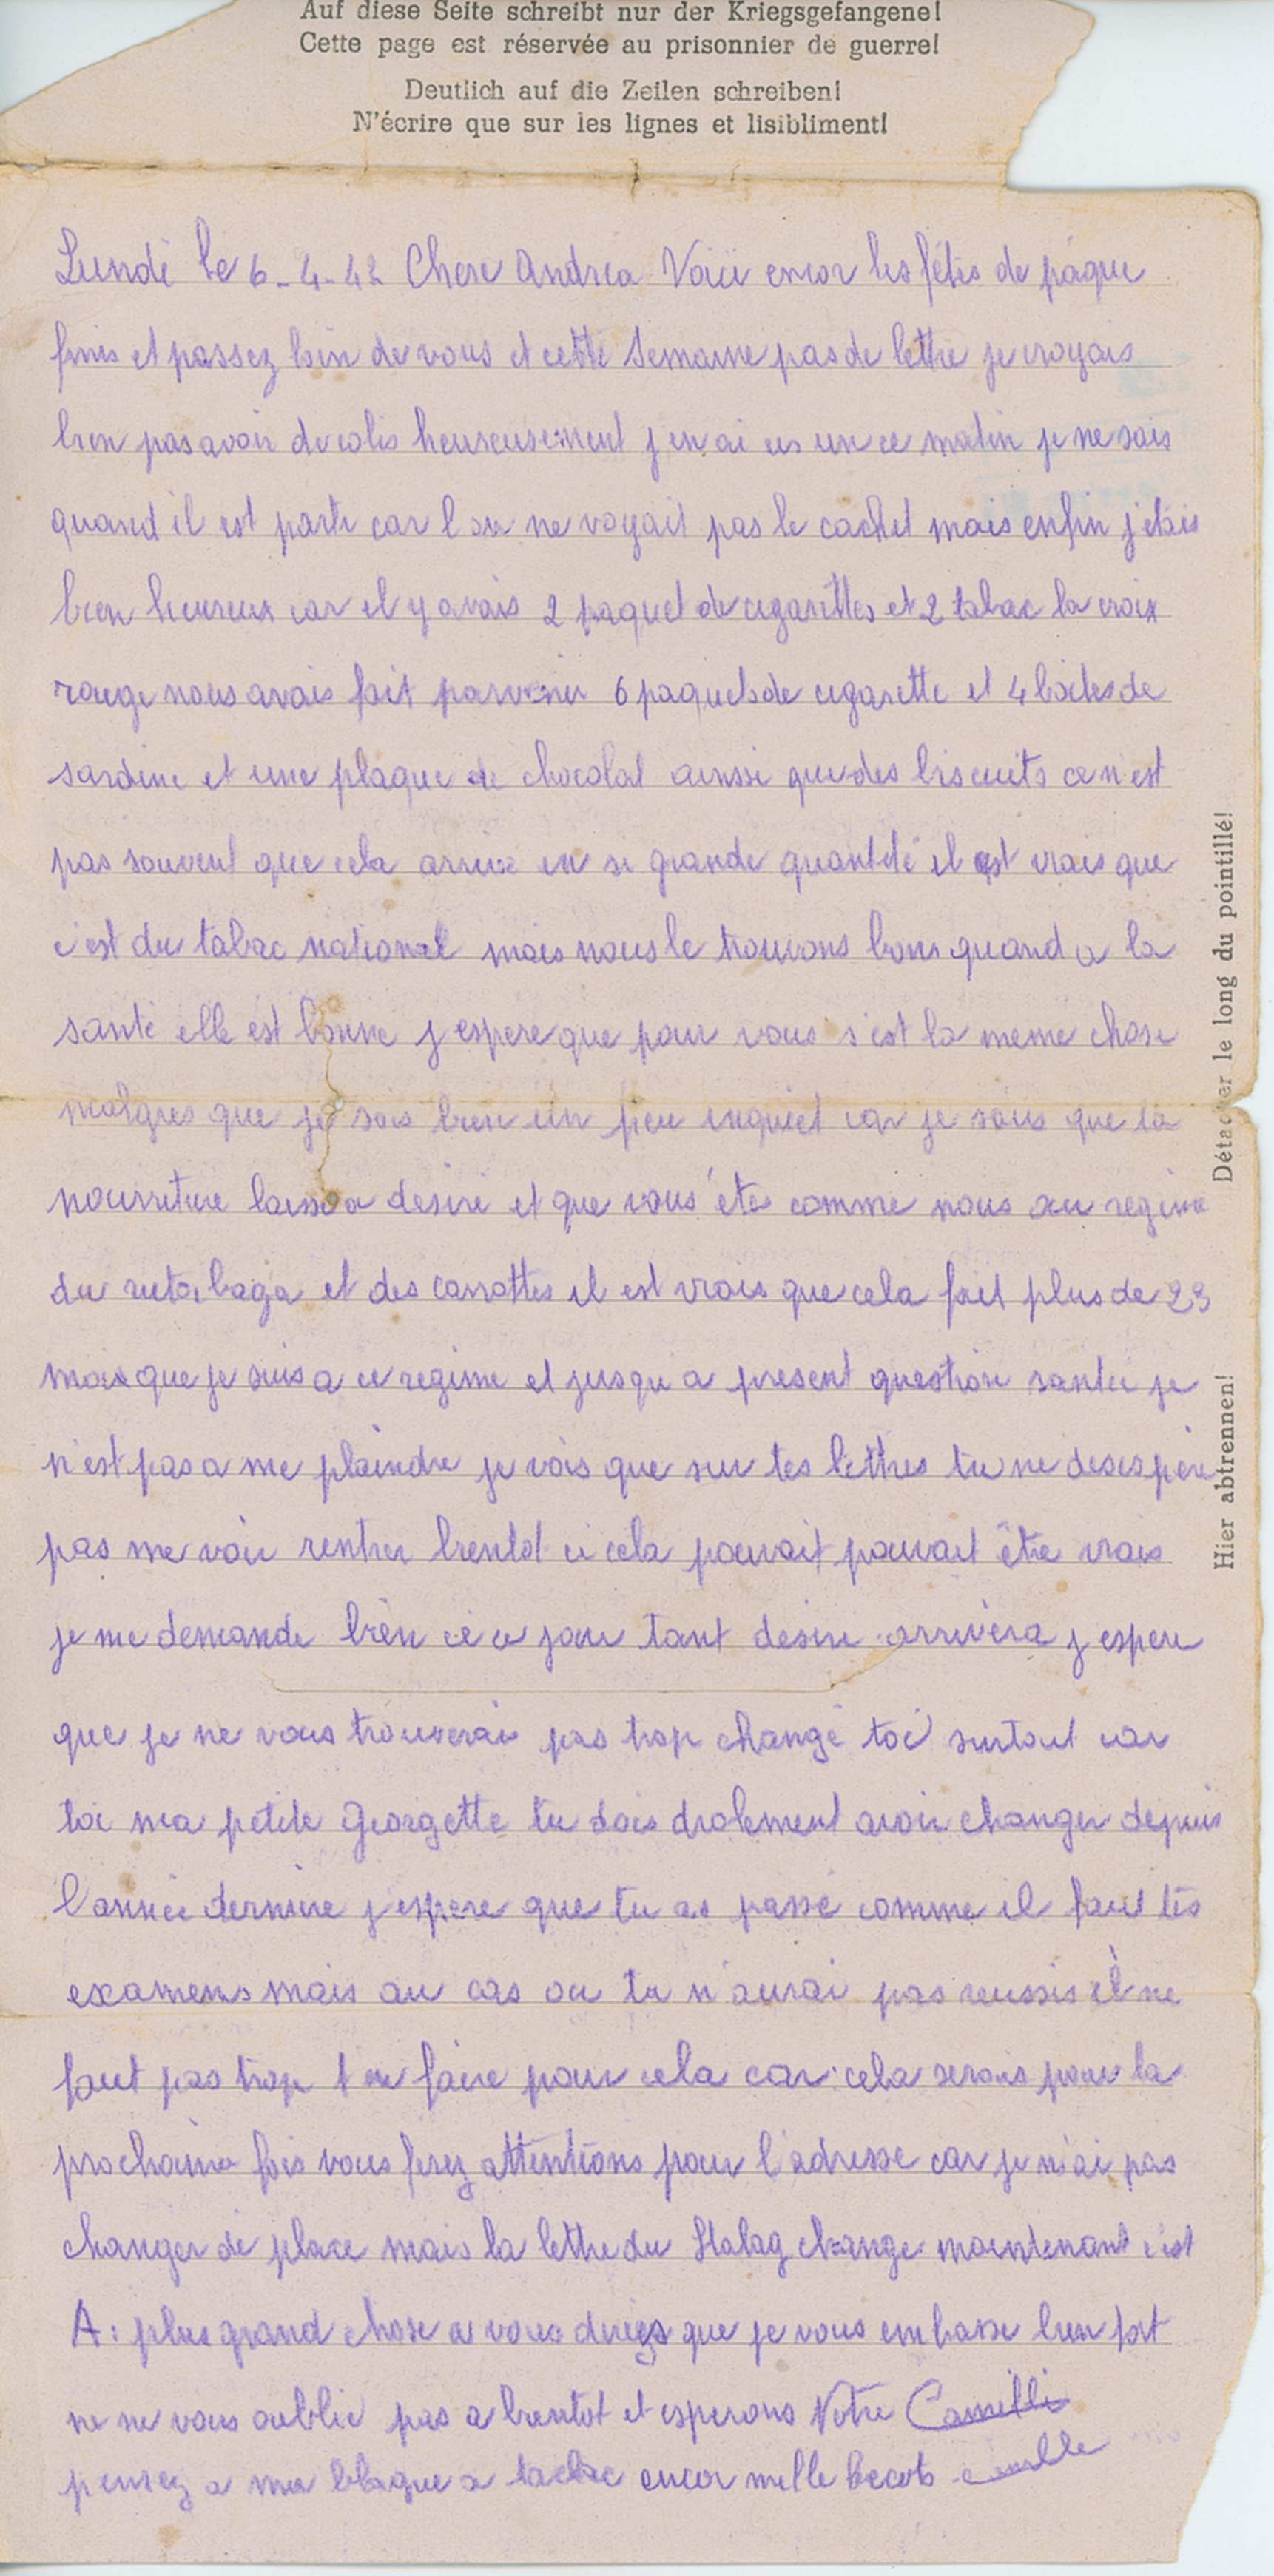 Auf diese Seite schreibt nur der Kriegsgefangene!
Cette page est réservée au prisonnier de guerre!
Deutlich auf die Zeilen schreiben!
N'écrire que sur les lignes et lisibliment!
Lundi le 6-4-42 Chere Andrea Voici encor les fétes de pàque
finis et passez loin de vous et cette semaine pas de lettre je croyais
bien pas avoir de colis heureusement j en ai eu un ce matin je ne sais
quand il est parti car l on ne voyait pas le cachet mais enfin j'étais
bien heureux car il y avais 2 paquet de cigarettes et 2 tabac la croix
rouge nous avais fait parvenir 6 paquets de cigarette et 4 boites de
sardine et une plaque de chocolat ainssi que des biscuits ce n'est
pas souvent que cela arrive en si grande quantité il est vrais que
c'est du tabac national mais nous le trouvons bons quand a la
santé elle est bonne j espere que pour vous s'est la meme chose
malgres que je sois bien un peu inquiet car je sais que la
nourriture laisse a desiré et que vous étes comme nous au regime
du rutabaga et des carrottes il est vrais que cela fait plus de 23
mois que je suis a ce regime et jusqu a present question santée je
n'est pas a me plaindre je vois que sur tes lettres tu ne desespère
pas me voir rentrer bientot ci cela pouvait pouvait être vrais
je me demande bien ci ce jour tant desire arrivera j espere
que je ne vous trouverais pas trop changé toi surtout car
toi ma petite Georgette tu dois drolement avoir changer depuis
l'année derniere j espere que tu as passé comme il faut tes
examens mais au cas ou tu n'aurai pas reussis il ne
faut pas trop t'en faire pour cela car cela serais pour la
prochaine fois vous ferez attentions pour l'adresse car je n'ai pas
changer de place mais la lettre du Stalag change maintenant c'est
A: plus grand chose a vous que je vous embasse bien fort
ne ne vous oublie pas a bientot et esperons Votre Camille
pensez a ma blague a tabac encor mille becots Camille
Détacher le long du pointillé!
Hier abtrennen!